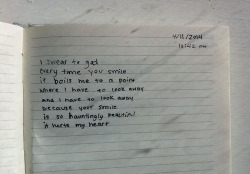 4/15/2014
10:42 PM
I swear to god
every time you smile
it boils me to a point
where I have to look away
and I have to look away
because your smile
is so hauntingly beautiful
it hurts my heart